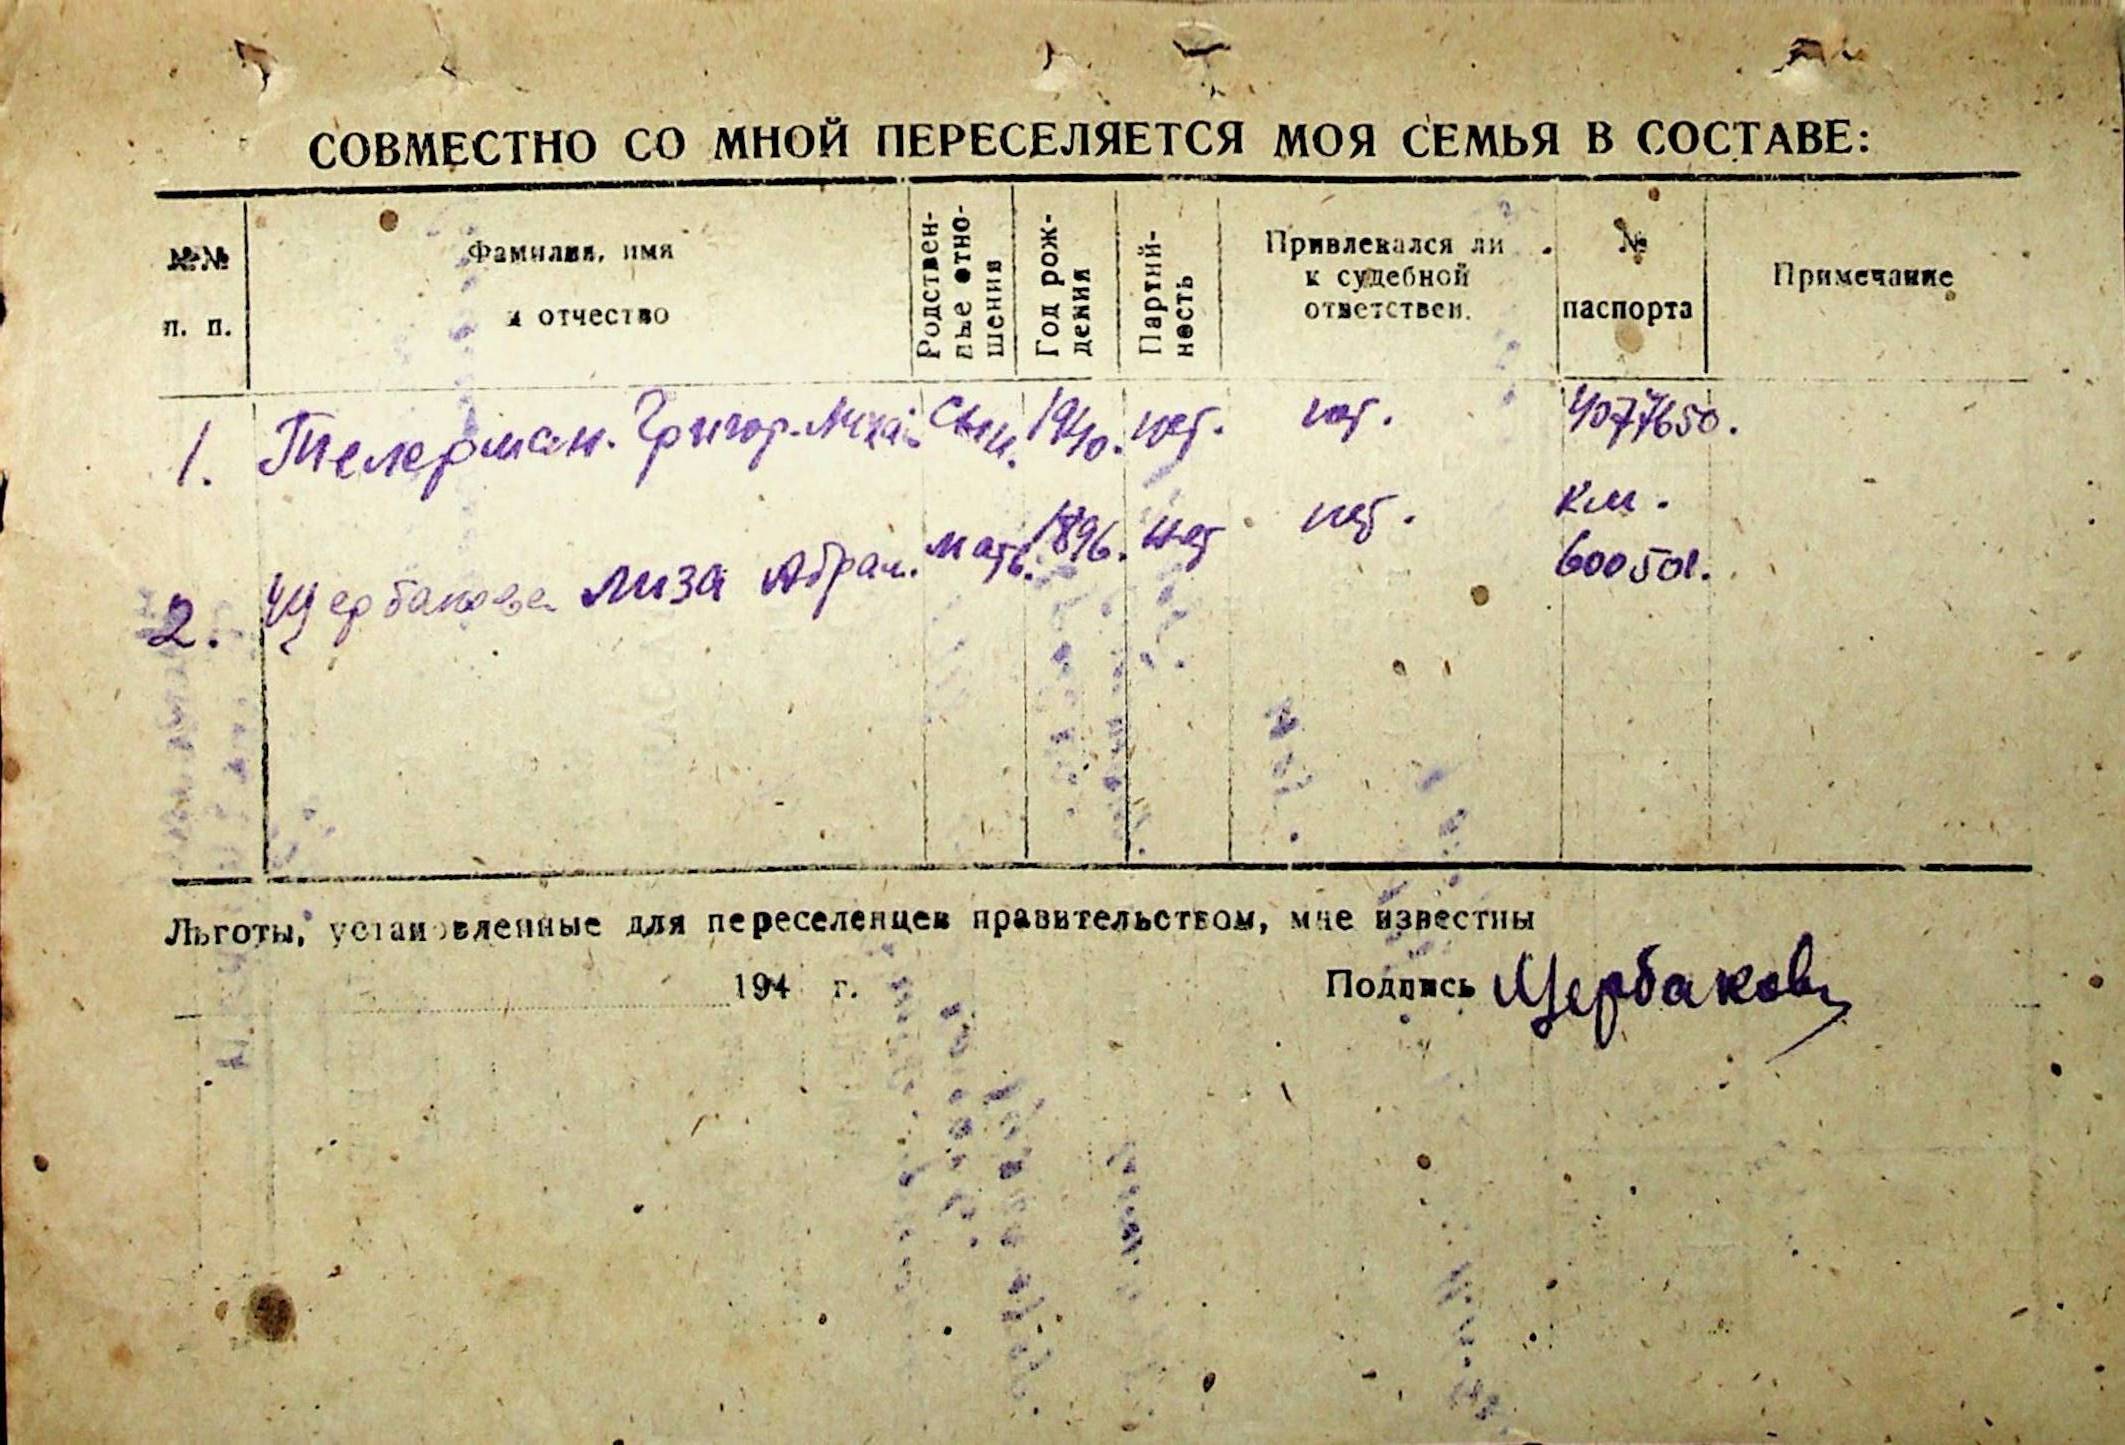 СОВМЕСТНО СО МНОЙ ПЕРЕСЕЛЯЕТСЯ МОЯ СЕМЬЯ В СОСТАВЕ:
№№ п. п.
Фамилия, имя и отчество
Родственные отношения
Год рождения
Партийность
Привлекался ли к судебной ответствен.
№ паспорта
Примечание
1. Телерман. Григор. Миха. Сын. 1940. нет. нет. 4077650.
км.
2. Щербакова Лиза Абрам. мать. 1896. нет нет. 600501.
Льготы, установленные для переселенцев правительством, мне известны
194 г. Подпись Щербакова